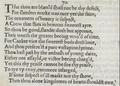 70
That thou are blam'd shall not be thy defect,
For slanders marke was euer yet the faire,
The ornament of beauty is suspect,
A Crow that flies in heauens sweetest ayre.
So thou be good, slander doth but approue,
Their worth the greater beeing woo'd of time,
For Canker vice the sweetest buds doth loue,
And thou present'st a pure vnstayined prime.
Thou hast past by the ambush of young daies,
Either not assayld, or victor beeing charg'd,
Yet this thy praise cannot be soe thy praise,
To tye vp enuy, euermore inlarged,
If some suspect of ill maskt not thy show,
Then thou alone kingdomes of hearts shouldst owe.